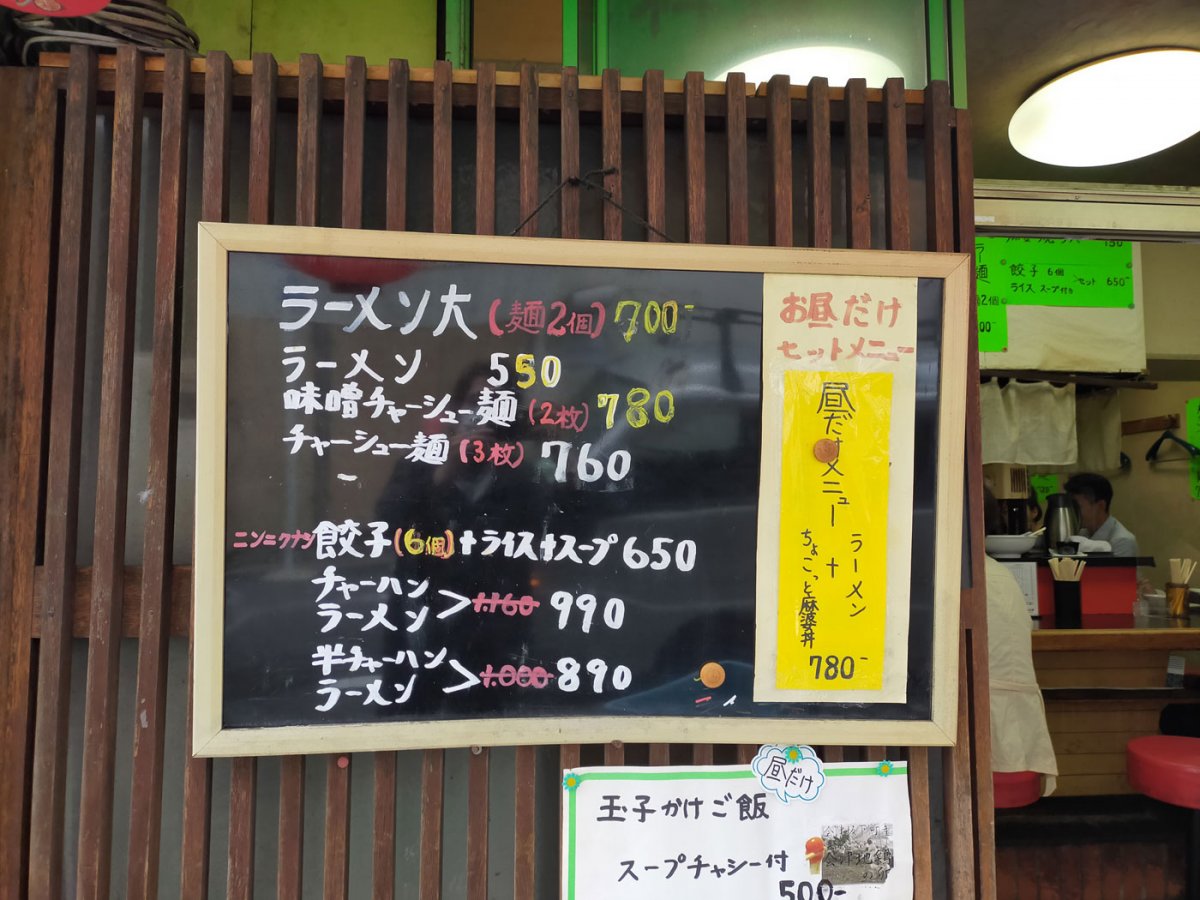 ラーメン大(麺2個)700-
ラーメン 550
味噌チャーシュー麺(2枚)780
チャーシュー麺(3枚)760
ニンニクナシ餃子(6個)+ライス+スープ650
チャーハン
ラーメン > 1.160 990
半チャーハン
ラーメン > 1.000 890
お昼だけ
セットメニュー
昼だけメニュー
ラーメン
+
ちょこっと麻婆丼
780-
昼だけ
玉子かけご飯
スープチャシー付
500-
150
餃子 6個
ライス スープ付き
セット 650-
麺
2個